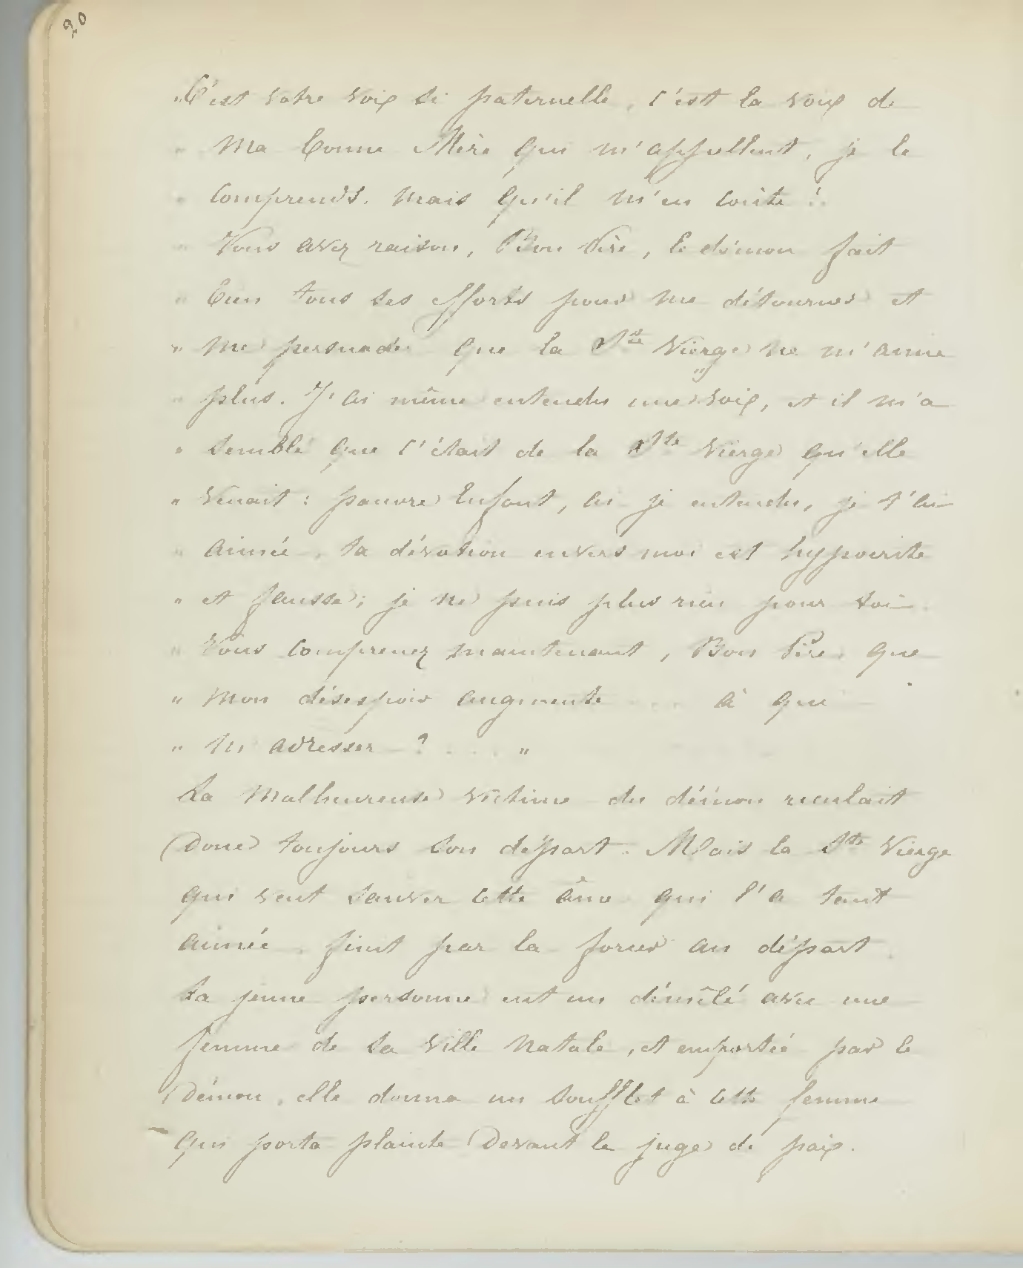 20
"C'est votre voix si paternelle, c'est la voix de
" Ma bonne Mère qui m'appellent, je le
" comprends. mais qu'il m'en coûte !.
" Vous avez raison, Bon Père, le démon fait
" bien tous ses efforts pour me détourner et
" me persuader que la Ste Vierge ne m'aime
" plus. J'ai même entendu une voix, et il m'a
" semblé que c'était de la Ste Vierge qu'elle
" venait : pauvre Enfant, ai je entendu, je t'ai
" aimée, ta dévotion envers moi est hypocrite
" et fausse; je ne puis plus rien pour toi
" Vous comprenez maintenant, Bon Père, que
" mon désespoir augmente .... à qui
" m'adresser ? .... "
La malheureuse victime du démon reculait
donc toujours son départ. Mais la Ste Vierge
qui veut sauver cette âme qui l'a tant
aimée, finit par la forcer au départ.
La jeune personne eut un démêlé avec une
femme de sa ville natale, et emportée par le
Démon, elle donna un soufflet à cette femme
qui porta plainte devant le juge de paix.